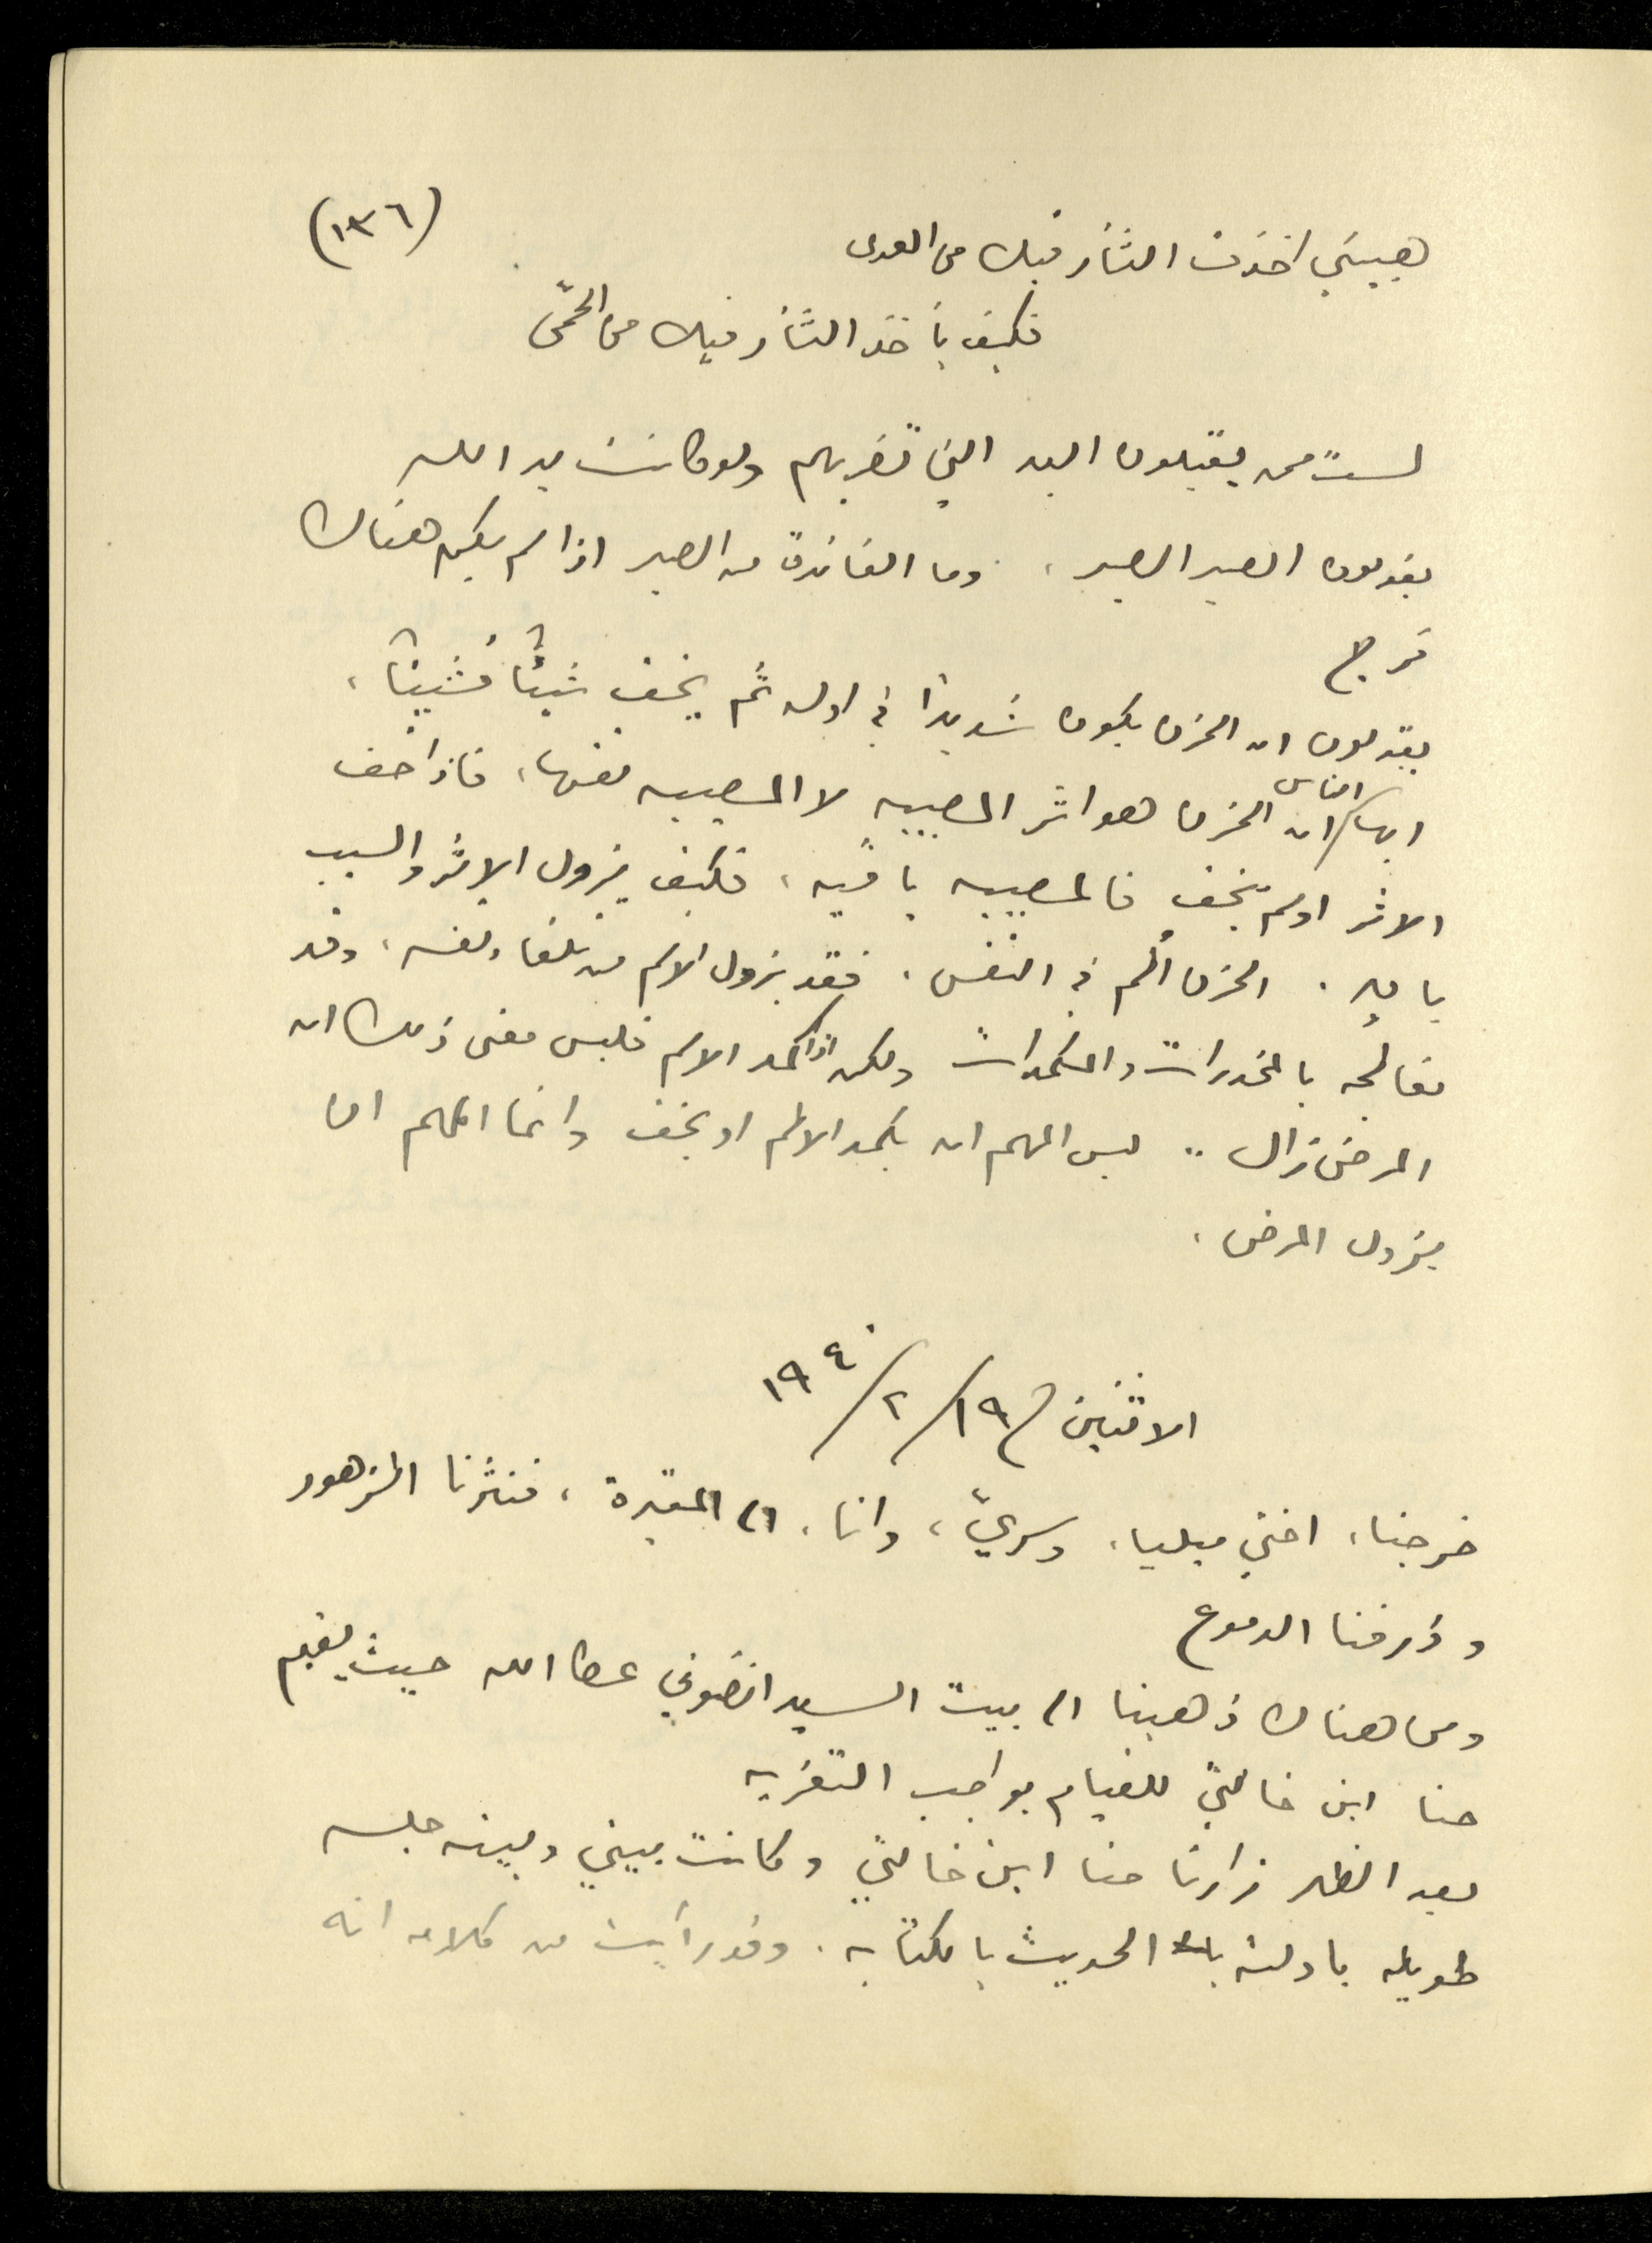 (١٣٦)
هبيني اخذت الثأر فيك من العدى
فكيف بأخذ الثأر فيك من الحمّى
لست ممن يقبلون اليد التي تضربهم ولو كانت يد الله
يقولون الصبر الصبر، وما الفائدة من الصبر اذا لم يكن هناك
فرج
يقولون ان الحزن يكون شديدا في اوله ثم يخف شيئاً فشيئاً،
ايها الناس ان الحزن هو اثر المصيبه لا المصيبه نفسها، فاذا خف
الاثر او لم يخف فالمصيبه باقيه، فكيف يزول الاثر والسبب
باقٍ. الحزن ألم في النفس. فقد يزول الالم من تلقاء نفسه، وقد
نعالجه بالمخدرات والمكمدات ولكن اذا كمد الالم فليس معنى ذلك ان
المرض زال .. ليس المهم ان يكمد الالم او يخف وانما المهم ان
يزول المرض.
الاثنين ١٩/٢/١٩٤٠
خرجنا، اختي ميليا، وسريّ، وانا، الى المقبرة، فنثرنا الزهور
وذرفنا الدموع
ومن هناك ذهبنا الى بيت السيد انضوني عطا الله حيث يقيم
حنا ابن خالتي للقيام بواجب التعزيه
بعد الظهر زارنا حنا ابن خالتي وكانت بيني وبينه جلسه
طويله بادلته الحديث بالكتابه. وقد رأيت من كلامه انه